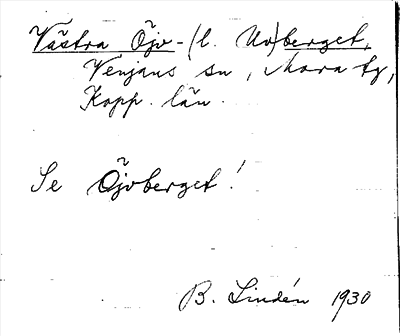 Västra Öjv-(l. Uv)berget,
Venjans sn, Mora tg,
Kopp. län.
Se Öjvberget!
B. Lindén 1930